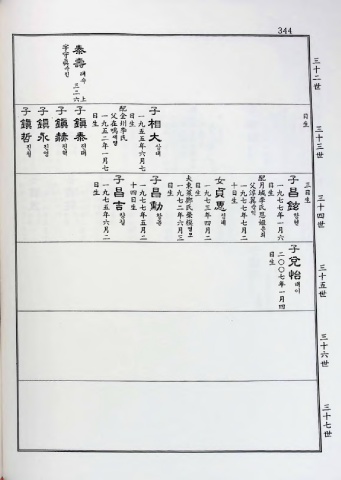 344
三十二世
泰壽 태수
上三二六
字守眞 수진
三十三世
日生
子相大 상대
一九五五年六月七
日生
配金川李氏
父在鳴 재명
一九五二年一月七
日生
子鎭泰 진태
子鎭赫 진혁
子鎭永 진영
子鎭哲 진철
三十四世
三日生
子昌鉉 창현
一九七七年一月六
日生
配月城李氏恩姬 은희
一九七七年四月二
十日生
女貞惠
一九七三年四月二
日生
夫東萊鄭氏
一九七二年六月三
日生
子昌勳 창훈
一九七七年五月二
十四日生
子昌吉 창길
一九七五年六月二
日生
三十五世
子兌怡 태이
二〇〇七年一月四
日生
三十六世
三十七世